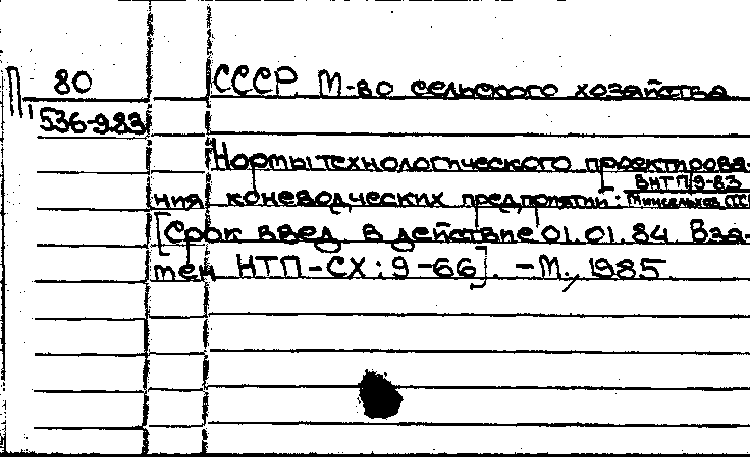 П 80 СССР М-во сельского хозяйства
536-983
Нормы технологического проектирова-
ВНТП/9-83
ния коневодческих предприятий: Минсельхоз СССР
[Срок введ. в действие 01.01.84 Вза-
мен НТП-СХ: 9-66]. -М., 1985.